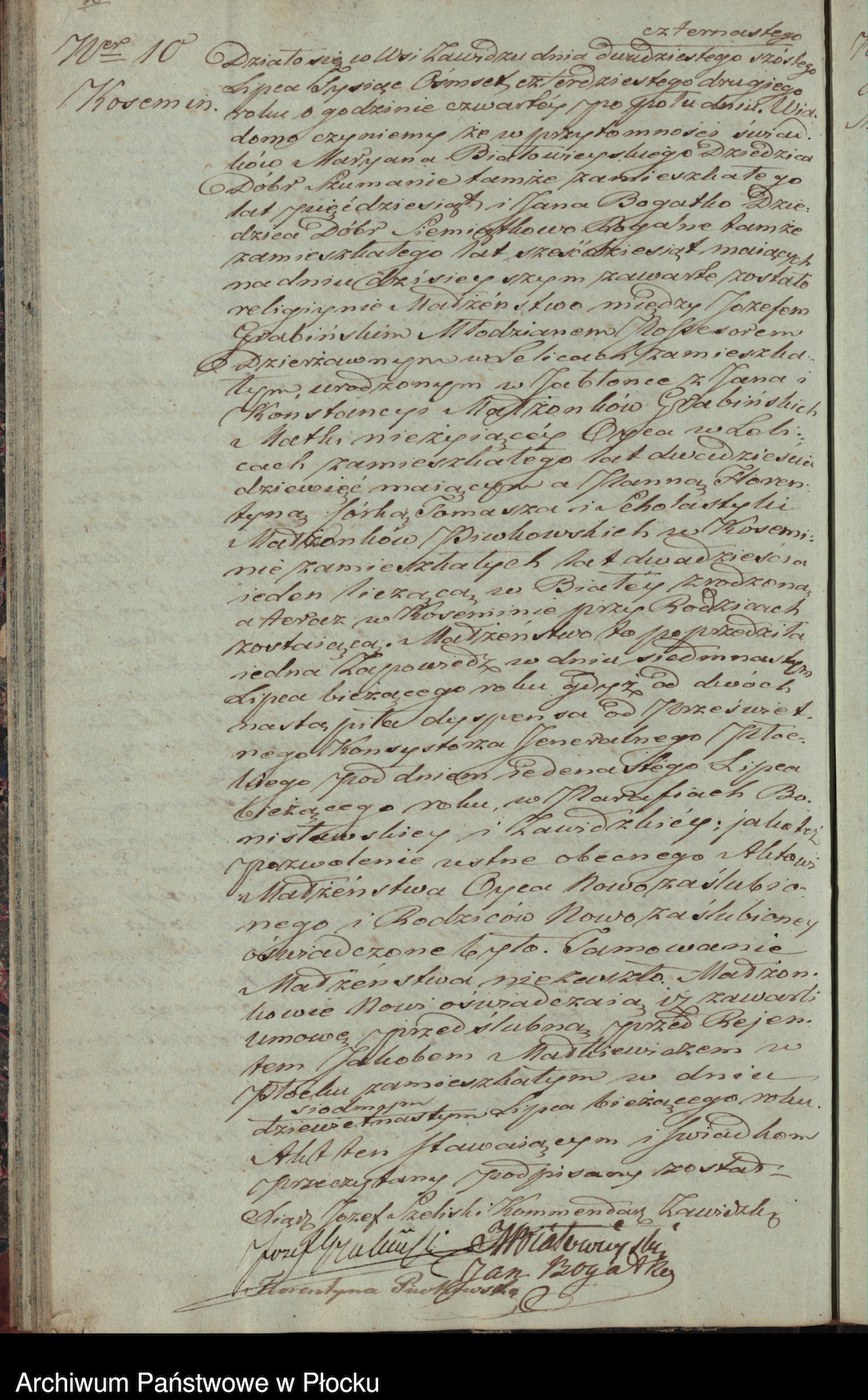 czternastego
Nro 10
Kosemin.
Działo się w Wsi Zawidzu dnia dwudziestego szóstego
Lipca Tysiąc Ośmset czterdziestego drugiego
roku o godzinie czwartéy po południu. Wia-
domo czyniemy że w przytomności świad-
ków Maryana Białowieyskiego Dziedzica
Dóbr Szumanie tamże zamieszkałego
lat pięćdziesiąt i Jana Bogatko Dzie-
dzica Dóbr Siemiątkowo Rogalne tamże
zamieszkałego lat sześćdziesiąt maiących
na dniu dzisieyszym zawarte zostało
religiynie Małżeństwo między Jozefem
Grabińskim Młodzianem Possesorem
Dzierżawnym w Lelicach zamieszka-
łym, urodzonym w Jabłonce z Jana i
Konstancyi Małżonków Grabińskich
Matki nieżyiącéy Oyca w Leli-
cach zamieszkałego lat dwadzieścia
dziewięć maiącym a Panną Floren-
tyną Córką Tomasza i Scholastyki
Małżonków Piwkowskich w Kosemi-
nie zamieszkałych lat dwadzieścia
ieden liczącą, w Białéy zrodzoną
a teraz w Koseminie przy Rodzicach
zostaiącą. Małżeństwo to poprzedziła
iedna Zapowiedź w dniu siedmnastym
Lipca bieżącego roku gdyż od dwóch
nastąpiła dyspensa od Przeświet-
nego Konsystorza Jeneralnego Płoc-
kiego pod dniem iedenastego Lipca
bieżącego roku, w Parafiach Bo-
nisławskiey i Zawidzkiéy; jako też
pozwolenie ustne obecnego Aktowi
Małżeństwa Oyca Nowozaślubio-
nego i Rodziców Nowozaślubioney
oświadczone było. Tamowanie
Małżeństwa niezaszło. Małżon-
kowie Nowi oświadczaią iż zawarli
umowę przedślubną przed Rejen-
tem Jakobem Małkiewiczem w
Płocku zamieszkałym w dniu
siodmym
dziewietnastym Lipca bieżącego roku.
Akt ten stawaiącym i świadkom
przeczytany podpisany został
Xiądz Jozef Szeliski Kommendarz Zawidzki
Jozef Grabiński MBiałowieyski
Jan Bogatko
Florentyna Piwkowska
Archiwum Państwowe w Płocku